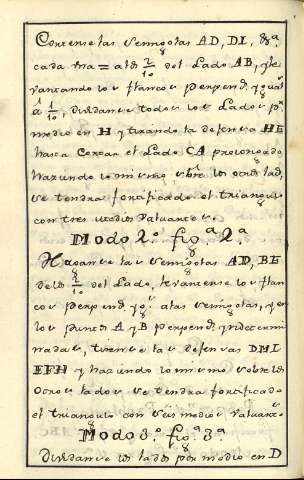 Cortense las semigolas AD, DI, &ª
cada una = a los 2/10 del Lado AB, y le
vantando los flancos perpend. y igual
à 1/10, dividanse todos los Lados pr
medio en H y tirando la defensa HE
hasta Cortar el Lado CA prolongado
haziendo lo mismo sbre los otros lads,
se tendra fortificado el triangulo
con tres medios valuartes.
Modo 2º figª 2ª
Hagan se las semigolas AD, BE
de los 2/10 del Lado, levantense los flan
cos perpend. y os a las semigolas, y en
los puntos A y B perpend. yndetermi
nadas, tirense las defensas DMI
EFH y haziendo lo mismo sobre los
Otros lados se tendra fortificado
el triangulo con seis medios valuartes
Modo 3º figª 3ª
Dividanse los lados por medio en D